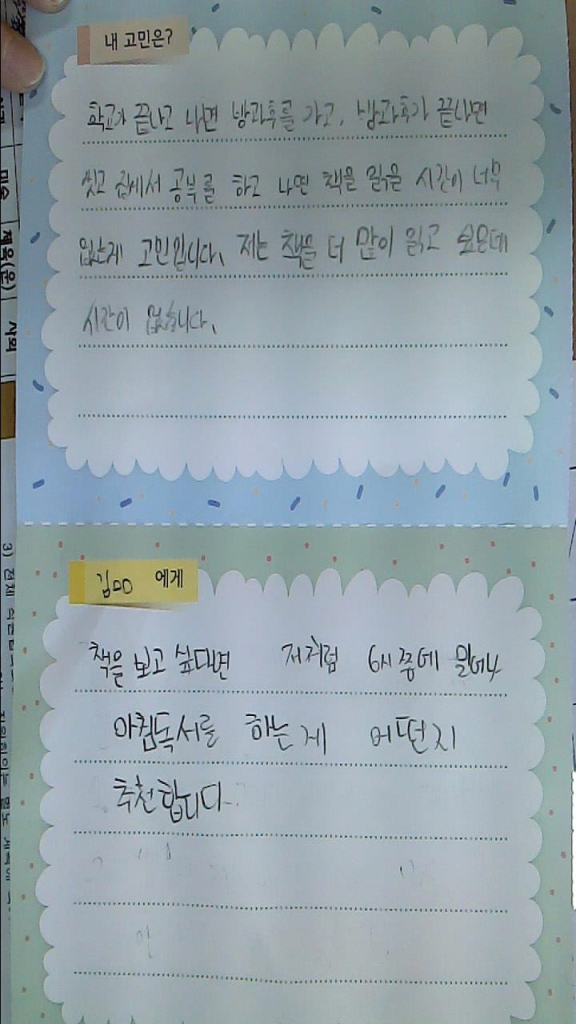 내 고민은?
학교가 끝나고 나면 방과후를 가고, 방과후가 끝나면
씻고 집에서 공부를 하고 나면 책을 읽을 시간이 너무
없는게 고민입니다. 저는 책을 더 많이 읽고 싶은데
시간이 없습니다.
김ㅁㅁ 에게
책을 보고 싶다면 저처럼 6시 쯤에 일어나
아침독서를 하는게 어떤지
추천합니다.
미술
체육(운)
사회